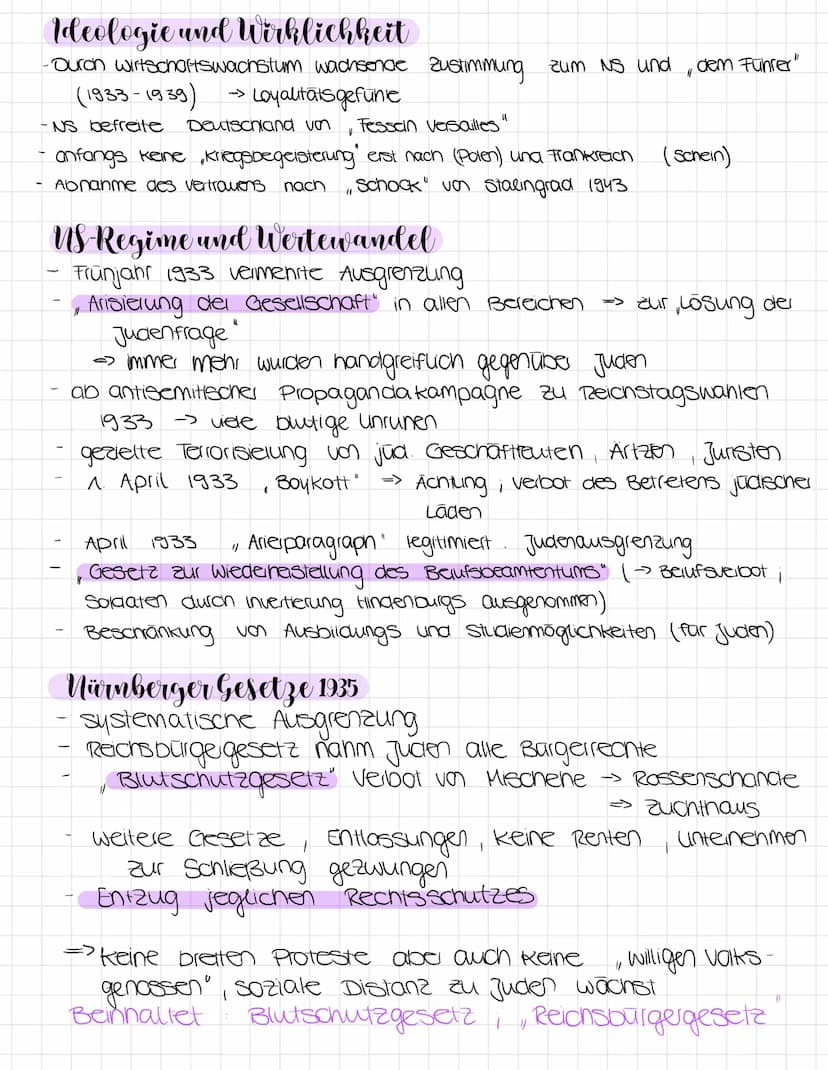 Ideologie und Wirklichkeit
- Durch Wirtschaftswachstum wachsende Zustimmung zum NS und „dem Führer"
(1933-1939) -> Loyalitätsgefühle
- NS befreite Deutschland von „Fesseln Versailles"
- anfangs keine „Kriegsbegeisterung" erst nach (Polen) und Frankreich (Schein)
- Abnahme des Vertrauens nach „Schock" von Stalingrad 1943
NS-Regime und Wertewandel
- Frühjahr 1933 vermehrte Ausgrenzung
- „Arisierung der Gesellschaft" in allen Bereichen => zur „Lösung der
Judenfrage"
=> immer mehr wurden handgreiflich gegenüber Juden
- ab antisemitischer Propagandakampagne zu Reichstagswahlen
1933 -> viele blutige Unruhen
- gezielte Terrorisierung von jüd. Geschäftleuten, Ärtzen, Juristen
- 1. April 1933 „Boykott" => Ächtung, Verbot des Betretens jüdischer
Läden
- April 1933 „Arierparagraph" legitimiert. Judenausgrenzung
- „Gesetz zur Wiederherstellung des Berufsbeamtentums" (-> Berufsverbot;
Soldaten durch Invertierung Hindenburgs ausgenommen)
- Beschränkung von Ausbildungs und Studienmöglichkeiten (für Juden)
Nürnberger Gesetze 1935
- systematische Ausgrenzung
- Reichsbürgergesetz nahm Juden alle Bürgerrechte
- „Blutschutzgesetz" Verbot von Mischehe -> Rassenschande
=> Zuchthaus
- weitere Gesetze, Entlassungen, keine Renten, Unternehmen
zur Schließung gezwungen
- Entzug jeglichen Rechtsschutzes
=> keine breiten Proteste aber auch keine „willigen Volks-
genossen", soziale Distanz zu Juden wächst
Beinhaltet: Blutschutzgesetz, „Reichsbürgergesetz"